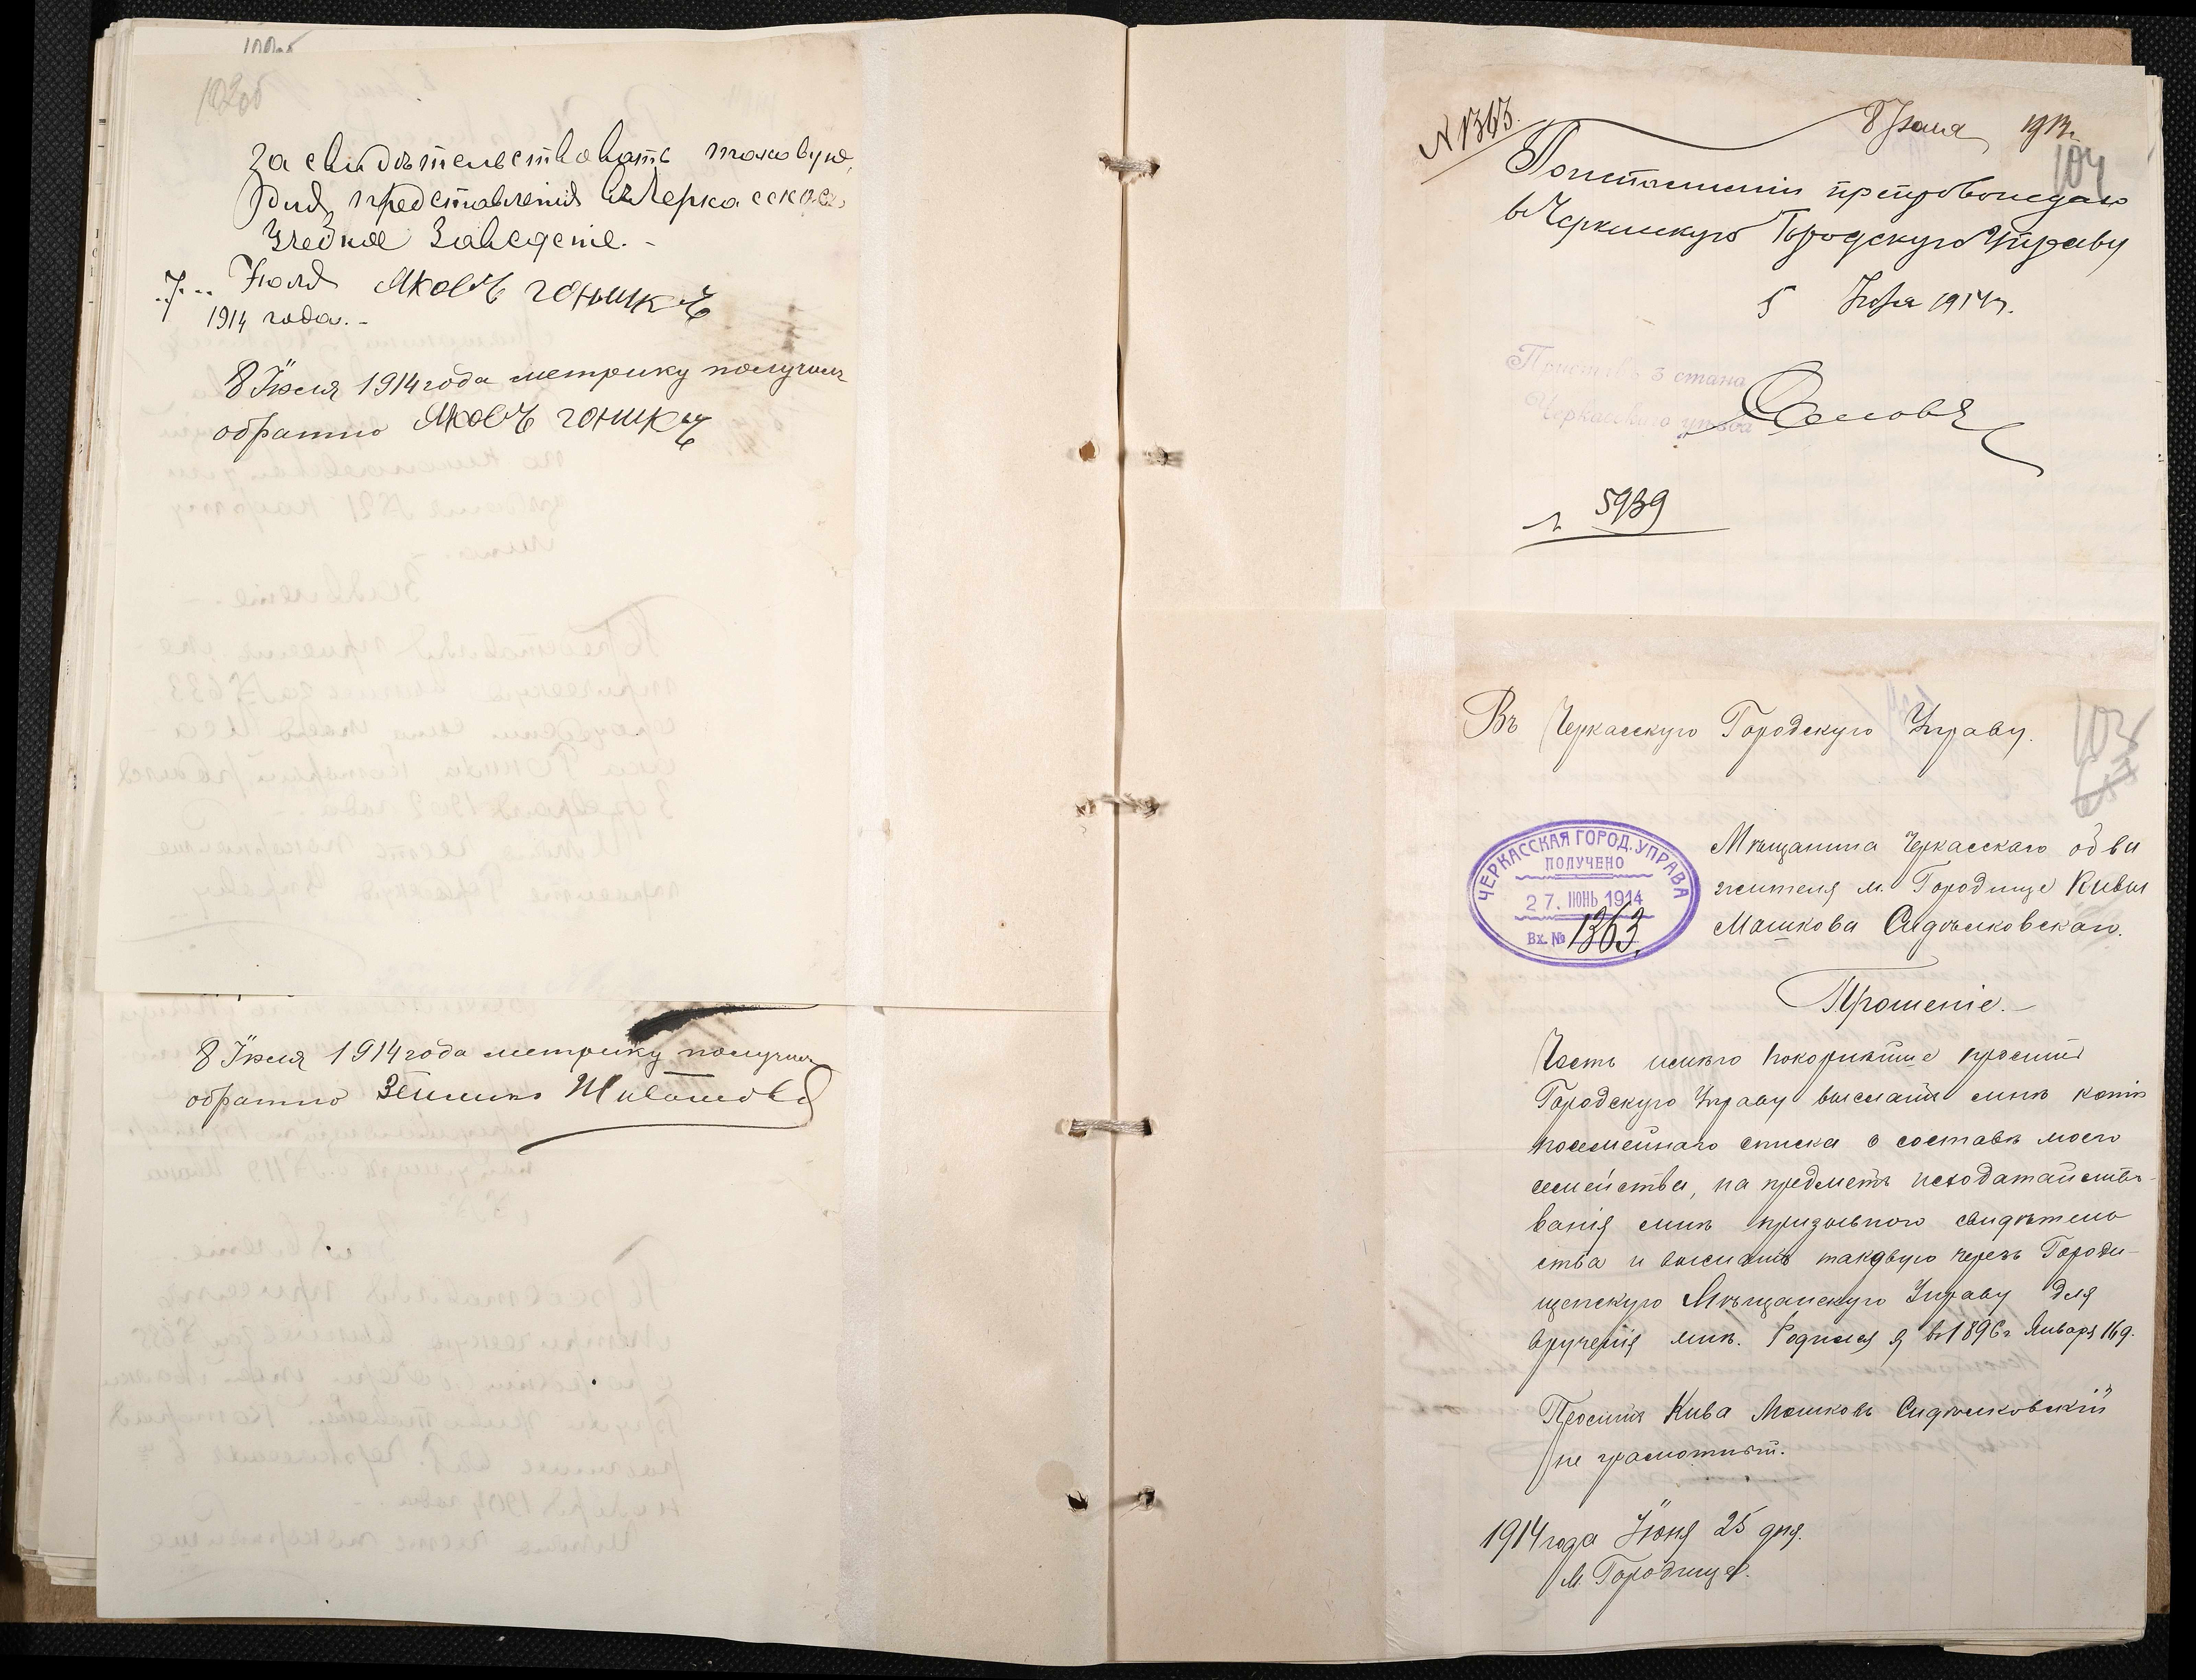 102об
Засвидѣтельствовать таковую,
для представленія въ Черкасское
Учебное Заведеніе. -
7 Іюля Яковъ Гоникъ
1914 года. -
8 Іюля 1914 года метрику получилъ
обратно Яковъ Гоникъ
8 Іюля 1914 года метрику получилъ
обратно
N 1363. 8 Іюля 1914 г.
104
препровождаю
въ Черкасскую Городскую Управу
5 Іюля 1914 г.
Приставъ 3 стана
Черкасскаго уѣзда
№ 5939
Въ Черкасскую Городскую Управу.
103
ЧЕРКАССКАЯ ГОРОД. УПРАВА
ПОЛУЧЕНО
27. ІЮНЬ 1914
Вх. № 1363.
Мѣщанина Черкасскаго об-ва
жителя м. Городище Кивы
Мошкова Сидѣлковскаго.
Прошеніе. -
Честь имѣю покорнѣйше просить
Городскую Управу выслать мнѣ копію
посемейнаго списка о составѣ моего
семейства, на предметъ исходатайство-
ванія мнѣ призывного свидѣтель
ства и выслать таковую черезъ Городи-
щенскую Мѣщанскую Управу для
врученія мнѣ. Родился я въ 1896 г Января 16 д.
Проситъ Кива Мошковъ Сидѣлковскій
не грамотный.
1914 года Іюня 25 дня.
М. Городище.